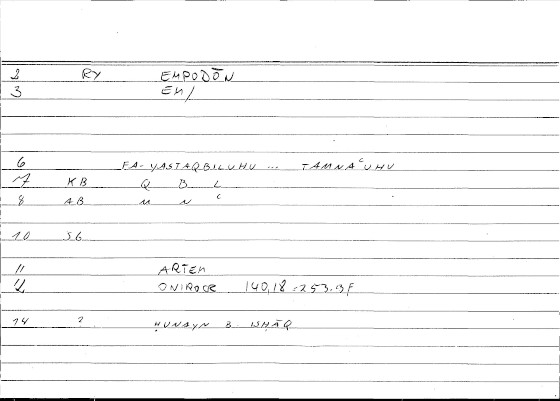 2 RY EMPODŌN
3 EM/
6 FA-YASTAQBILUHU ... TAMNAʿUHU
7 KB Q B L
8 AB M N ʿ
10 SG
11 ARTEM
12 ONIROCR 140,18 = 253.9F
14 ? ḤUNAYN B ISḤĀQ